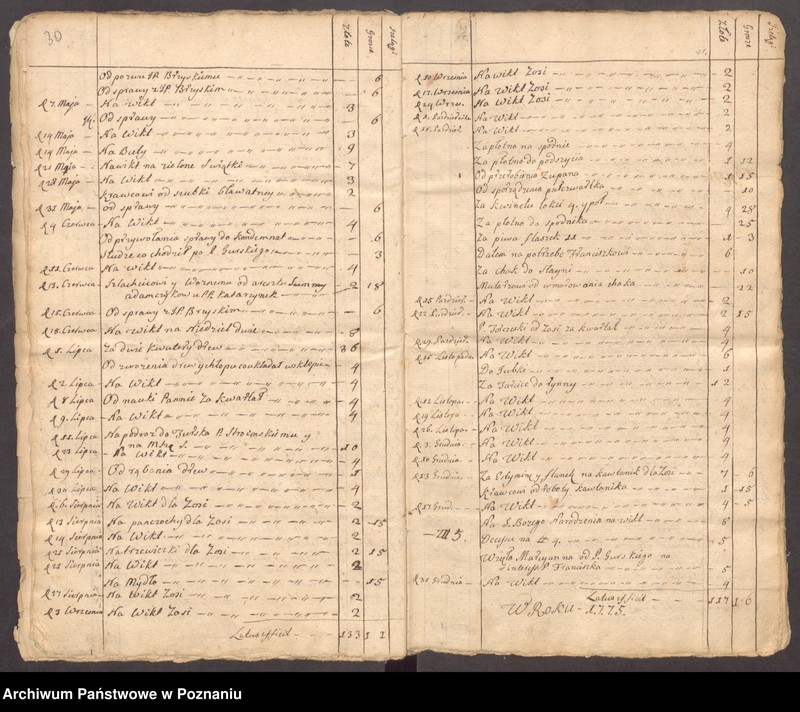 30
Złote Grosze Szelągi
Od pozwu JP. Bryskiemu 6
Od sprawy z JP. Bryskim 6
d. 7. Maja Na wikt 3
Od sprawy 6
d. 14 Maja Na Wikt 3
d. 19 Maja Na Buty 9
d. 21 Maja Na wikt na zielone Swiątki 7
d. 28 Maja Na Wikt 3
Krawcowi od szubki bławatney 2
d. 31 Maja Od sprawy 6
d. 4 Czerwca Na Wikt 4
Od przywołania sprawy do kondemnat 6
Słudze co chodził po P. Gurskiego 3
d. 11. Czerwca Na wikt 4
d. 13. Czerwca Szlachcicowi y Woznemu od aresztu Summy 2 18
adamczykow u PP. Katarzynek
d. 15. Czerwca Od sprawy z JP. Bryskim 6
d. 18. Czerwca Na wikt na Niedziel dwie 8
d. 1. Lipca Za dwie kwatery drew 36
Od zwozenia drew y chłopu co układał w sklepie 4
d. 2 Lipca Na Wikt 4
d. 8 Lipca Od nauki Pannie za kwartał 4
d. 9. Lipca Na Wikt 4
d. 22. Lipca Na podroz do P. Stroinskiemu y
na 10
d. 23 Lipca Na Wikt 4
d. 29 Lipca Od rąbania drew 1
d. 30 Lipca Na Wikt 4
d. 6. Sierpnia Na Wikt dla Zosi 2
d. 13 Sierpnia Na panczochy dla Zosi 2 15
d. 14. Sierpnia Na Wikt 2
d. 21 Sierpnia Na trzewiczki dla Zosi 2 15
d. 21 Sierpnia Na Wikt 2
Na Mydło 15
d. 27 Sierpnia Na Wikt Zosi 2
d. 3 Wrzesnia Na Wikt Zosi 2
Latus efficit 133 12
Złote Grosze Szelągi
d. 10 Wrzesnia Na Wikt Zosi 2
d. 17. Wrzesnia Na Wikt Zosi 2
d. 24 Wrzes. Na Wikt Zosi 2
d. 1. Pazdziernika Na Wikt 2
Na Wikt 2
Za płotno na spodnie 4
Za płotno do podszycia 1 12
Od przerobienia Zupana 1 15
Od sporządzenia paterwałka 10
Za kwinetu łokci 4. y poł 4 28
Za płotno do spodnika 25
Za piwa flaszek 11 1 3
Dałem na potrzebe Franciszkowi 6
Za do stayni 10
Mularzowi od wmurowania 22
Na Wikt 2
Na Wikt 2 15
P. od Zosi za kwartał 4
Na Wikt 4
d. 16 Listopada Na Wikt 6
Do Jubki 1
Za Tarcice do 12
d. 12 Listopa. Na Wikt 4
d. 19 Listopa. Na Wikt 4
d. 26. Listopa. Na Wikt 4
d. 3. Grudnia. Na Wikt 4
d. 10 Grudnia. Na Wikt 4
d. 13 Grudnia. Za y flanelę na kawtanik dla Zosi 7 6
Krawcowi od roboty kawtanika 1 15
d. 17 Grud. Na Wikt 4 5
Na S. Bozego Narodzenia na wikt 8
5
Wzięła Maryanna od P. Gurskiego na
interess P. Franciszka 5
d. 31 Grudnia Na Wikt 4
Latus efficit 117 16
W Roku 1775.
Archiwum Państwowe w Poznaniu